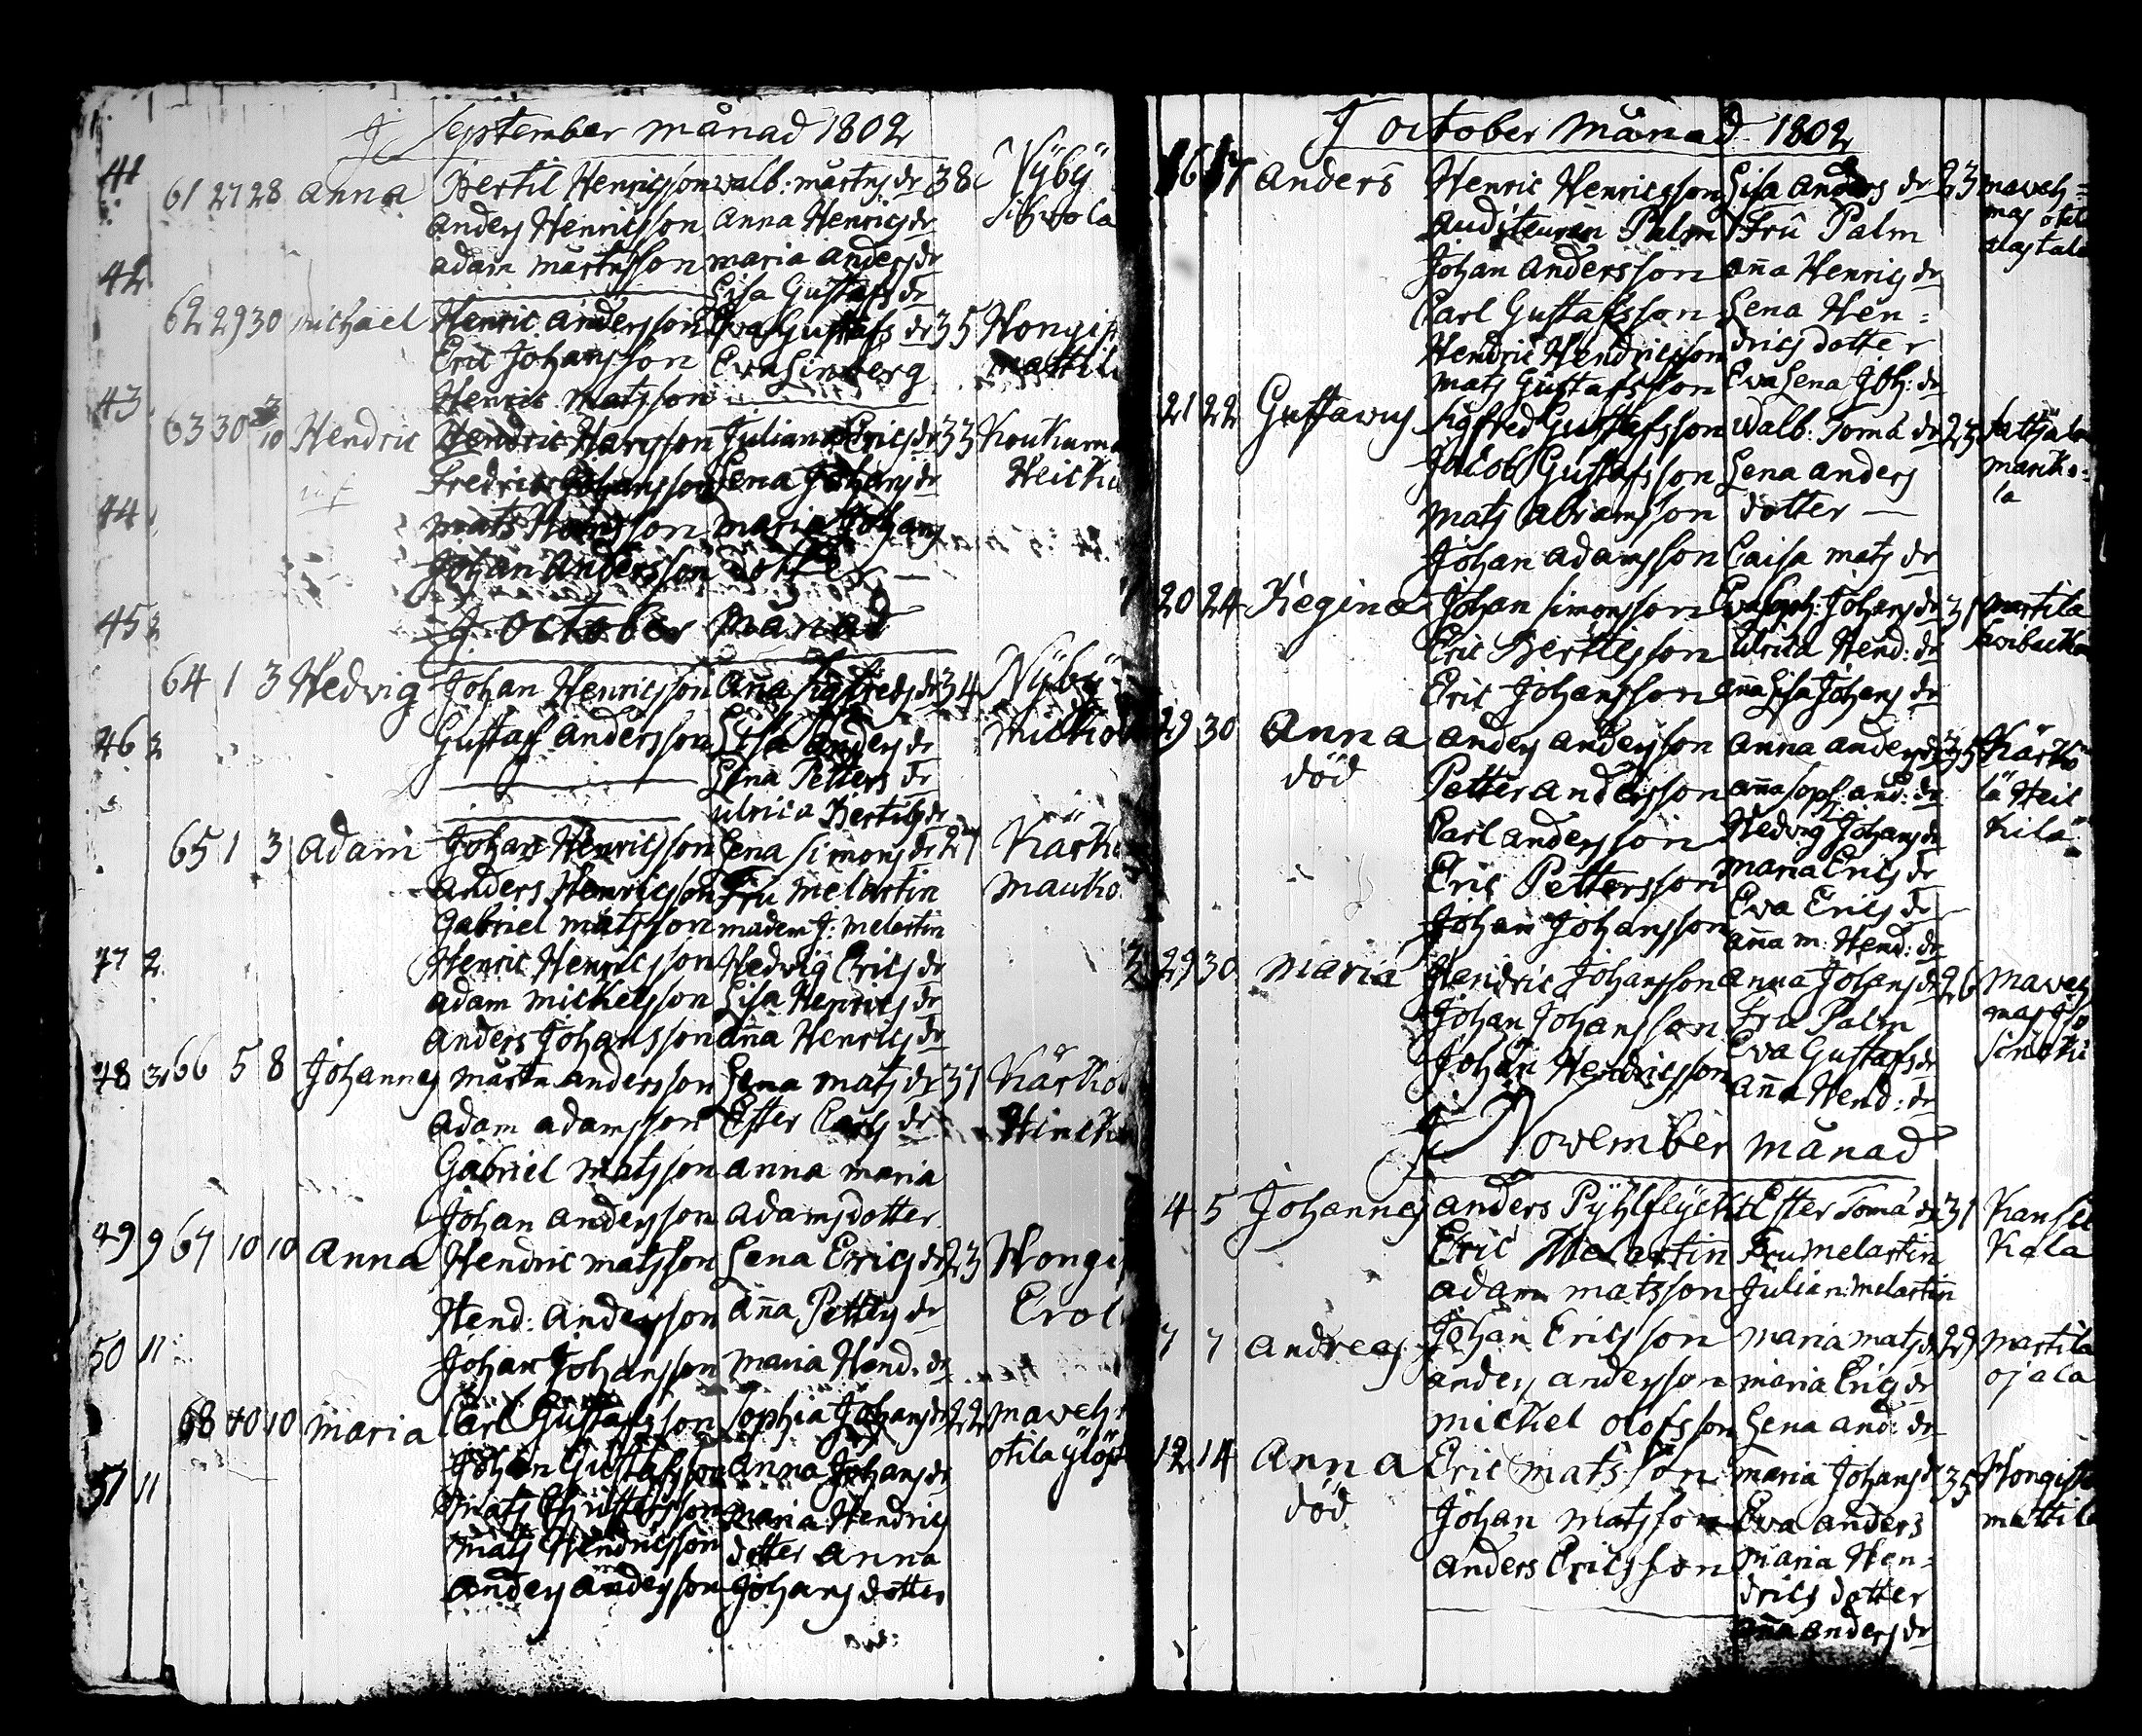 J September månad 1802
41
61 27 28 anna Bertil Henricsson walb: märtns dr 38 Nÿbÿ
anders Henricsson anna Henrics dr
adam märtnsson maria anders dr
42
Lisa Gustafs dr
62 29 30 michael Henric andersson Eva Gustafs dr 35 Hongis
Eric Johansson Eva Lindberg mattil
43
Henric matsson
63 30 3/10 Hendric Hendric Hansson Juliana Erics dr 33 Koukuma
Fredric Johansson Lena Johans dr Heicku
44
mats Hansson maria Johans
Johan andersson dotter
45 2
J October månad
64 1 3 Hedvig Johan Henricsson aña sigfreds dr 34 Nÿbÿ
46 2
Gustaf andersson Lisa anders dr mickol
Lena Petters dr
ulrica Bertils dr
65 1 3 adam Johan Henricsson Lena simons dr 27 Kärko
anders Henricsson Fru melartin mauko
Gabriel matsson madem J: melartin
47 2
Henric Henricsson Hedvig Erics dr
adam mickelsson Lisa Henrics dr
anders Johansson aña Henrics dr
48 3 66 5 8 Johannes märtn andersson Lena mats dr 37 Kärko
adam adamsson Ester Carls dr
Gabriel matsson anna maria
Johan andersson adamsdotter
49 9 67 10 10 anna Hendric matsson Lena Erics dr 23 Hongi
Hend: andersson aña Petters dr Erol
50 11
Johan Johansson maria Hend: dr
68 10 10 maria Carl Gustafsson sophia Johans dr 22 maveh:
Johan Gustafsson anna Johans dr otila ÿlös
51 11
mats Christersson maria Hendrics
mats Hendricsson dotter anna
anders andersson Johans dotter
J october månad 1802
16 17 anders Henric Henricsson Lisa anders dr 23 maveh=
auditeuren Palm Fru Palm mas otil
Johan andersson aña Henrics dr alastalo
Carl Gustafsson Lena Hen=
Hendric Hendricsson drics dotter
mats Gustafsson Eva Lena Joh: dr
21 22 Gustavus sigfred Gustafsson walb: Toma dr 25
Jacob Gustafsson Lena anders marko=
mats abramsson dotter la
Johan adamsson Caisa mats dr
20 24 Regina Johan simonsson Eva soph: Johans dr 31 martila
Eric Bertilsson ulrica Hend: dr
Eric Johansson aña Lisa Johans dr
29 30 Anna anders andersson anna anders dr 35 Kärko
död Petter andersson aña soph: and: dr lä Heic
Carl andersson Hedvig Johans dr kilä
Eric Pettersson maria Erics dr
Johan Johansson Eva Erics dr
aña m: Hend: dr
29 30 maria Hendric Johansson anna Johans dr 26 maveh
Johan Johansson Fru Palm
Johan Hendricsson Eva Gustafs dr
aña Hend: dr
J November månad
4 5 Johannes anders Pÿhlflÿckt Ester Toma dr 31 Kanfle
Eric Melartin Fru melartin Kala
adam matsson Julian: melartin
7 7 andreas Johan Ericsson maria mats dr 29 martila
anders andersson maria Erics dr ojala
mickel olofsson Lena and: dr
12 14 Anna Eric matsson maria Johans dr 35 Hongisto
död Johan matsson Eva anders mattila
anders Ericsson maria Hen=
drics dotter
aña anders dr